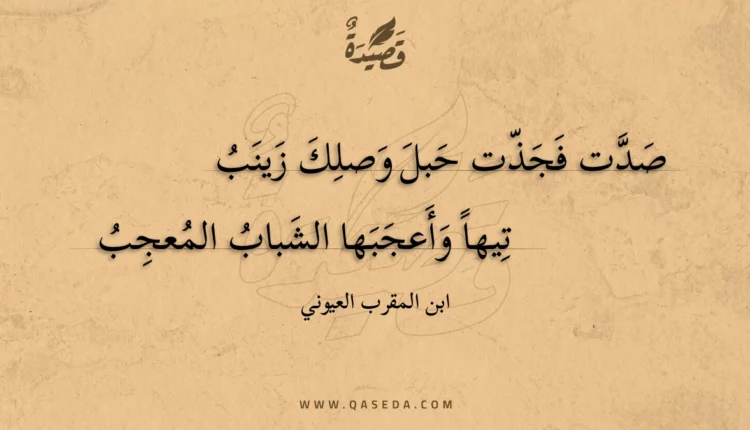 قَصِيْدَةٌ
صَدَّت فَجَذّت حَبلَ وَصلِكَ زَينَبُ
تِيهاً وَأَعجَبَها الشَبابُ المُعجِبُ
ابن المقرب العيوني
WWW.QASEDA.COM